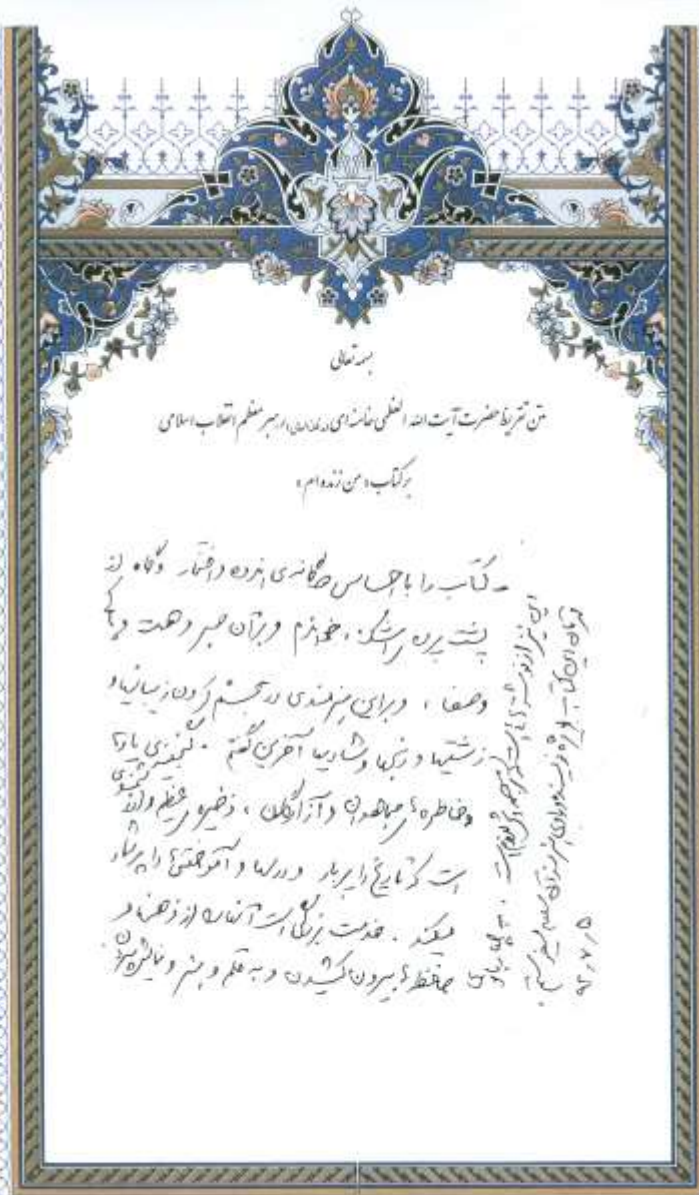 بسمه تعالی
متن تقریظ حضرت آیت الله العظمی خامنه ای (مد ظله العالی) رهبر معظم انقلاب اسلامی
بر کتاب «من زنده ام»
کتاب را با احساس دوگانه‌ی اندوه و افتخار و گاه از
پشت پرده‌ی اشک، خواندم و بر آن صبر و همت و پاکی
و صفا، و بر این هنرمندی در مجسم کردن زیبائیها و
زشتیها و رنجها و شادیها آفرین گفتم. گنجینه‌ی یادها
و خاطره‌های مجاهدان و آزادگان، ذخیره‌ی عظیم و ارزشمندی
است که تاریخ را پربار و درسها و آموختنی‌ها را پرشمار
میکند. خدمت بزرگی است آنها را از ذهنها و
حافظه‌ها بیرون کشیدن و به قلم و هنر و نمایش سپردن.
این نیز از نوشته‌هائی است که ترجمه‌اش لازم است. به چهار بانوی
قهرمان این کتاب بویژه نویسنده و راوی هنرمند آن سلام میفرستم.
۹۲/۷/۵